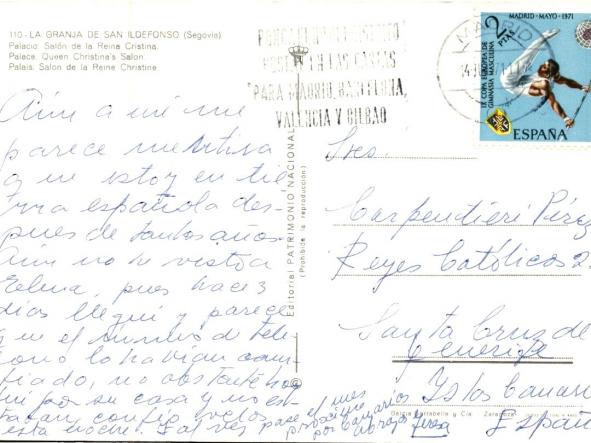 110-LA GRANJA DE SAN ILDEFONSO (Segovia)
Palacio: Salón de la Reina Cristina.
Palace: Queen Christina's Salon.
Palais: Salon de la Reine Christine
EN LAS CARTAS
PARA MADRID, BARCELONA,
VALENCIA Y BILBAO
MADRID
MADRID-MAYO-1971
2 PTAS
IX COPA EUROPEA DE
GIMNASIA MASCULINA
ESPAÑA
Aún a mi me
parece mentira
que estoy en tie
rra española des-
pues de tantos años.
Aún no he visto a
Elena, pues hace 3
dias llegué y parece
que el número de telé-
fono lo habían cam-
biado, no obstante
fui por su casa y no es-
taban, confio verlos
esta noche. Tal vez pase el mes
próximo
por Canarias
abrazos
Editorial PATRIMONIO NACIONAL
(Prohibida la reproducción)
Sres.
Carpentieri Pérez
Reyes Católicos 2
Santa Cruz de
Tenerife
Islas Canarias
España
García Garrabella y Cía. Zaragoza